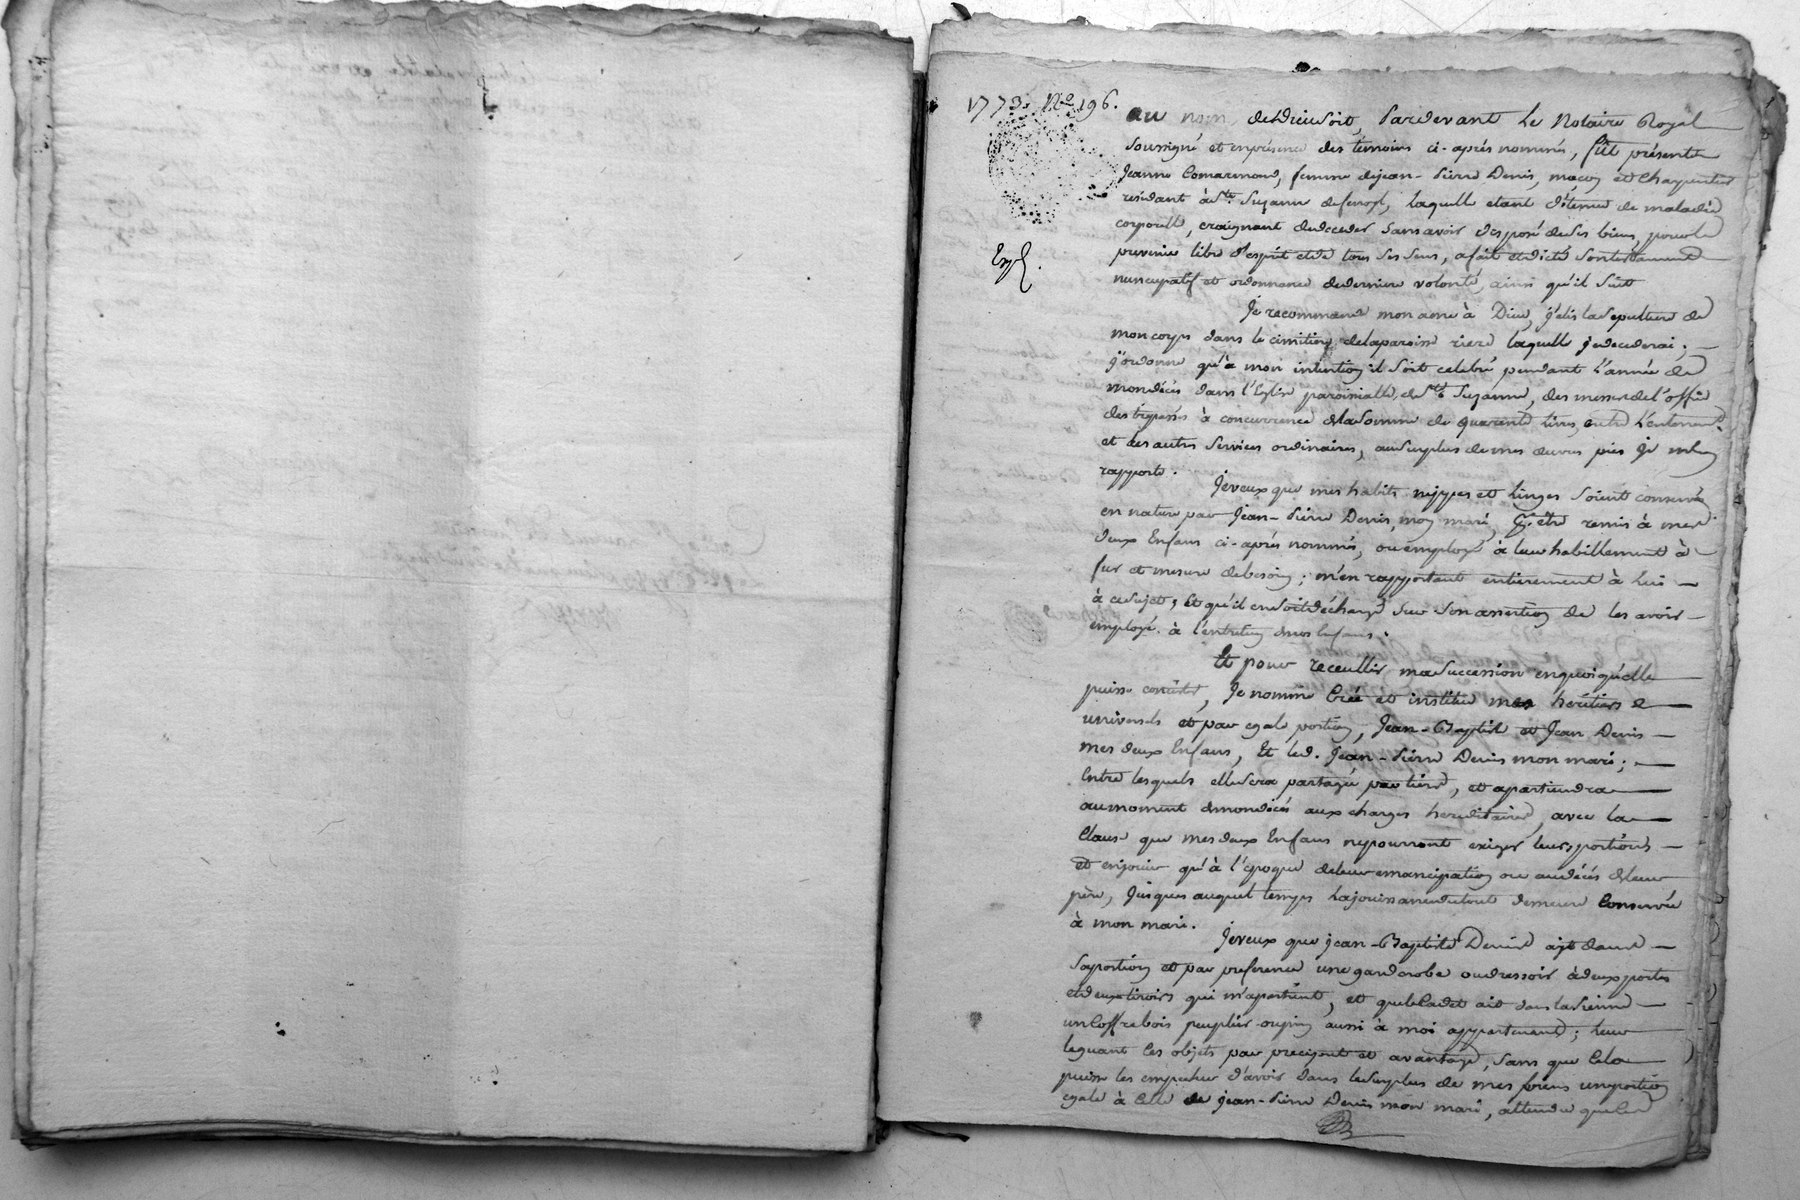 1773. N.o 196.
au nom de Dieu soit, Pardevant Le Notaire Royal
soussigné et en présence des témoins ci-après nommés, fût présente
Jeanne Comarmond, femme de jean-Pierre Denis, maçon et Charpentier
résidant à Ste. Suzanne, laquelle etant détenue de maladie
corporelle, craignant de deceder sans avoir disposé de ses biens, pour le
prevenir libre d'esprit et de tous ses sens, a fait et dicté son testament
nuncupatif et ordonnance de derniere volonté, ainsi qu'il suit
Exp.
Je recommande mon ame à Dieu, j'élis la sepulture de
mon corps dans le cimitiere de la paroisse riere laquelle je decederai;
j'ordonne qu'à mon intention il soit celebré pendant l'année de
mon décès dans l'Eglise paroissialle de Ste Suzanne, des messes de l'office
des trépassés à concurrence de la somme de quarante livres, outre l'enterrement
et les autres services ordinaires, au surplus de mes œuvres pies je m'en
rapporte.
Je veux que mes habits nippes et linges soient conservés
en nature par Jean-Pierre Denis, mon mari, pr. être remis à mes
deux Enfans ci-après nommés, ou employé à leur habillement à
fur et mesure de besoin; m'en rapportant entierement à lui
à ce sujet, et qu'il en soit déchargé sur son assertion de les avoir
employé à l'entretien de nos Enfans.
Et pour receullir ma succession en quoi qu'elle
puisse consister, Je nomme Crée et institue mes heritiers
universels et par egale portion, Jean-Baptiste et Jean Denis
mes deux Enfans, Et led. Jean-Pierre Denis mon mari;
Entre lesquels elle sera partagée par tiers, et apartiendra
au moment de mon décès aux charges hereditaires, avec la
Clause que mes deux Enfans ne pourront exiger leurs portions
et en jouir qu'à l'epoque de leur emancipation ou au décès de leur
père, jusques auquel temps la jouissance du tout demeure Conservée
à mon mari.
Je veux que jean-Baptiste Denis ait dans
sa portion et par preference une garderobe ou dressoir à deux portes
et deux tiroirs qui m'apartient, et que le Cadet ait dans la sienne
un Coffre bois peuplier ou pin aussi à moi appartenant; leur
leguant Ces objets par precipu et avantage, sans que Cela
puisse les empecher d'avoir dans le surplus de mes biens une portion
egale à Celle de jean-Pierre Denis mon mari, attendu que les